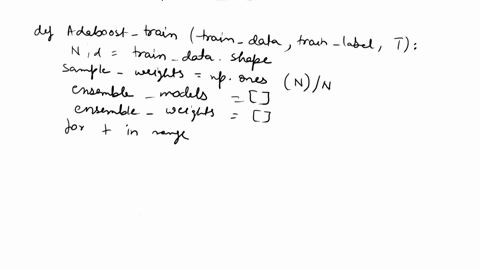 def Adaboost_train (train_data, train_label, T):
N, d = train_data. shape
sample_weights = np. ones (N)/N
ensemble_models = []
ensemble_weights = []
for t in range